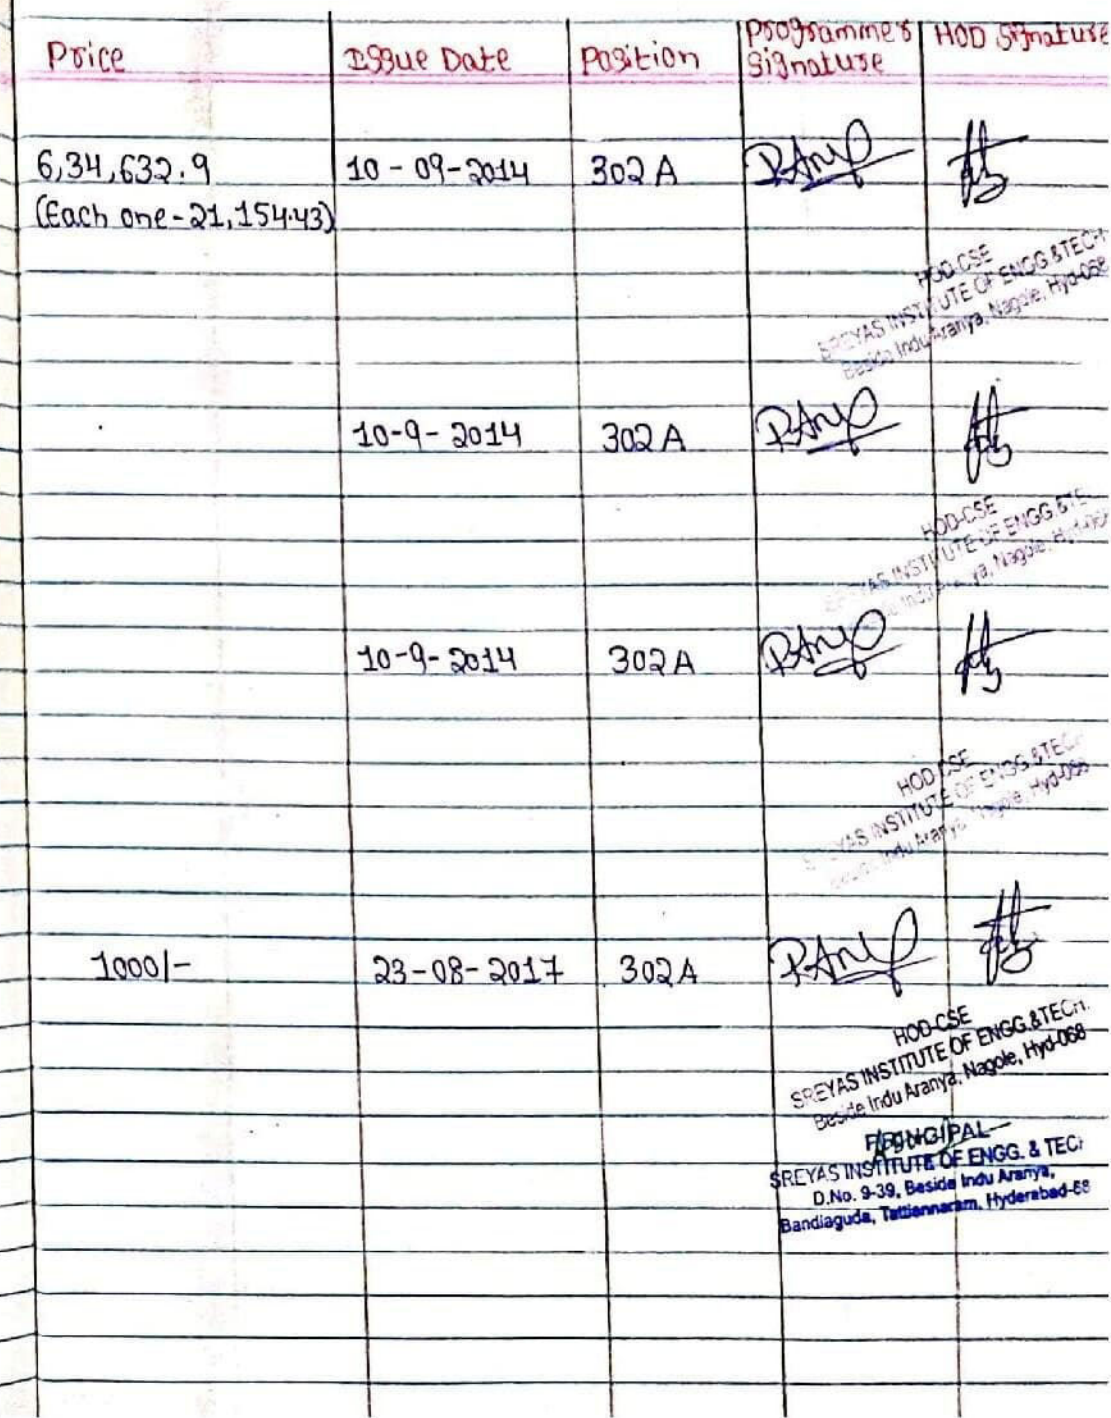 Price Issue Date Position Programmer Signature HOD Signature
6,34,632.9 10-09-2014 302A
(Each one-21,154.43)
HOD-CSE
SREYAS INSTITUTE OF ENGG.&TECH
Beside Indu Aranya, Nagole, Hyd-068
10-9-2014 302A
HOD-CSE
INSTITUTE OF ENGG.
Nagole,
10-9-2014 302A
HOD-CSE
SREYAS INSTITUTE OF ENGG.&TECH
Indu Aranya, Nagole, Hyd-068
1000/- 23-08-2017 302A
HOD-CSE
SREYAS INSTITUTE OF ENGG.&TECH.
Beside Indu Aranya, Nagole, Hyd-068
PRINCIPAL
SREYAS INSTITUTE OF ENGG. & TECH
D.No. 9-39, Beside Indu Aranya,
Bandlaguda, Tattiannaram, Hyderabad-68